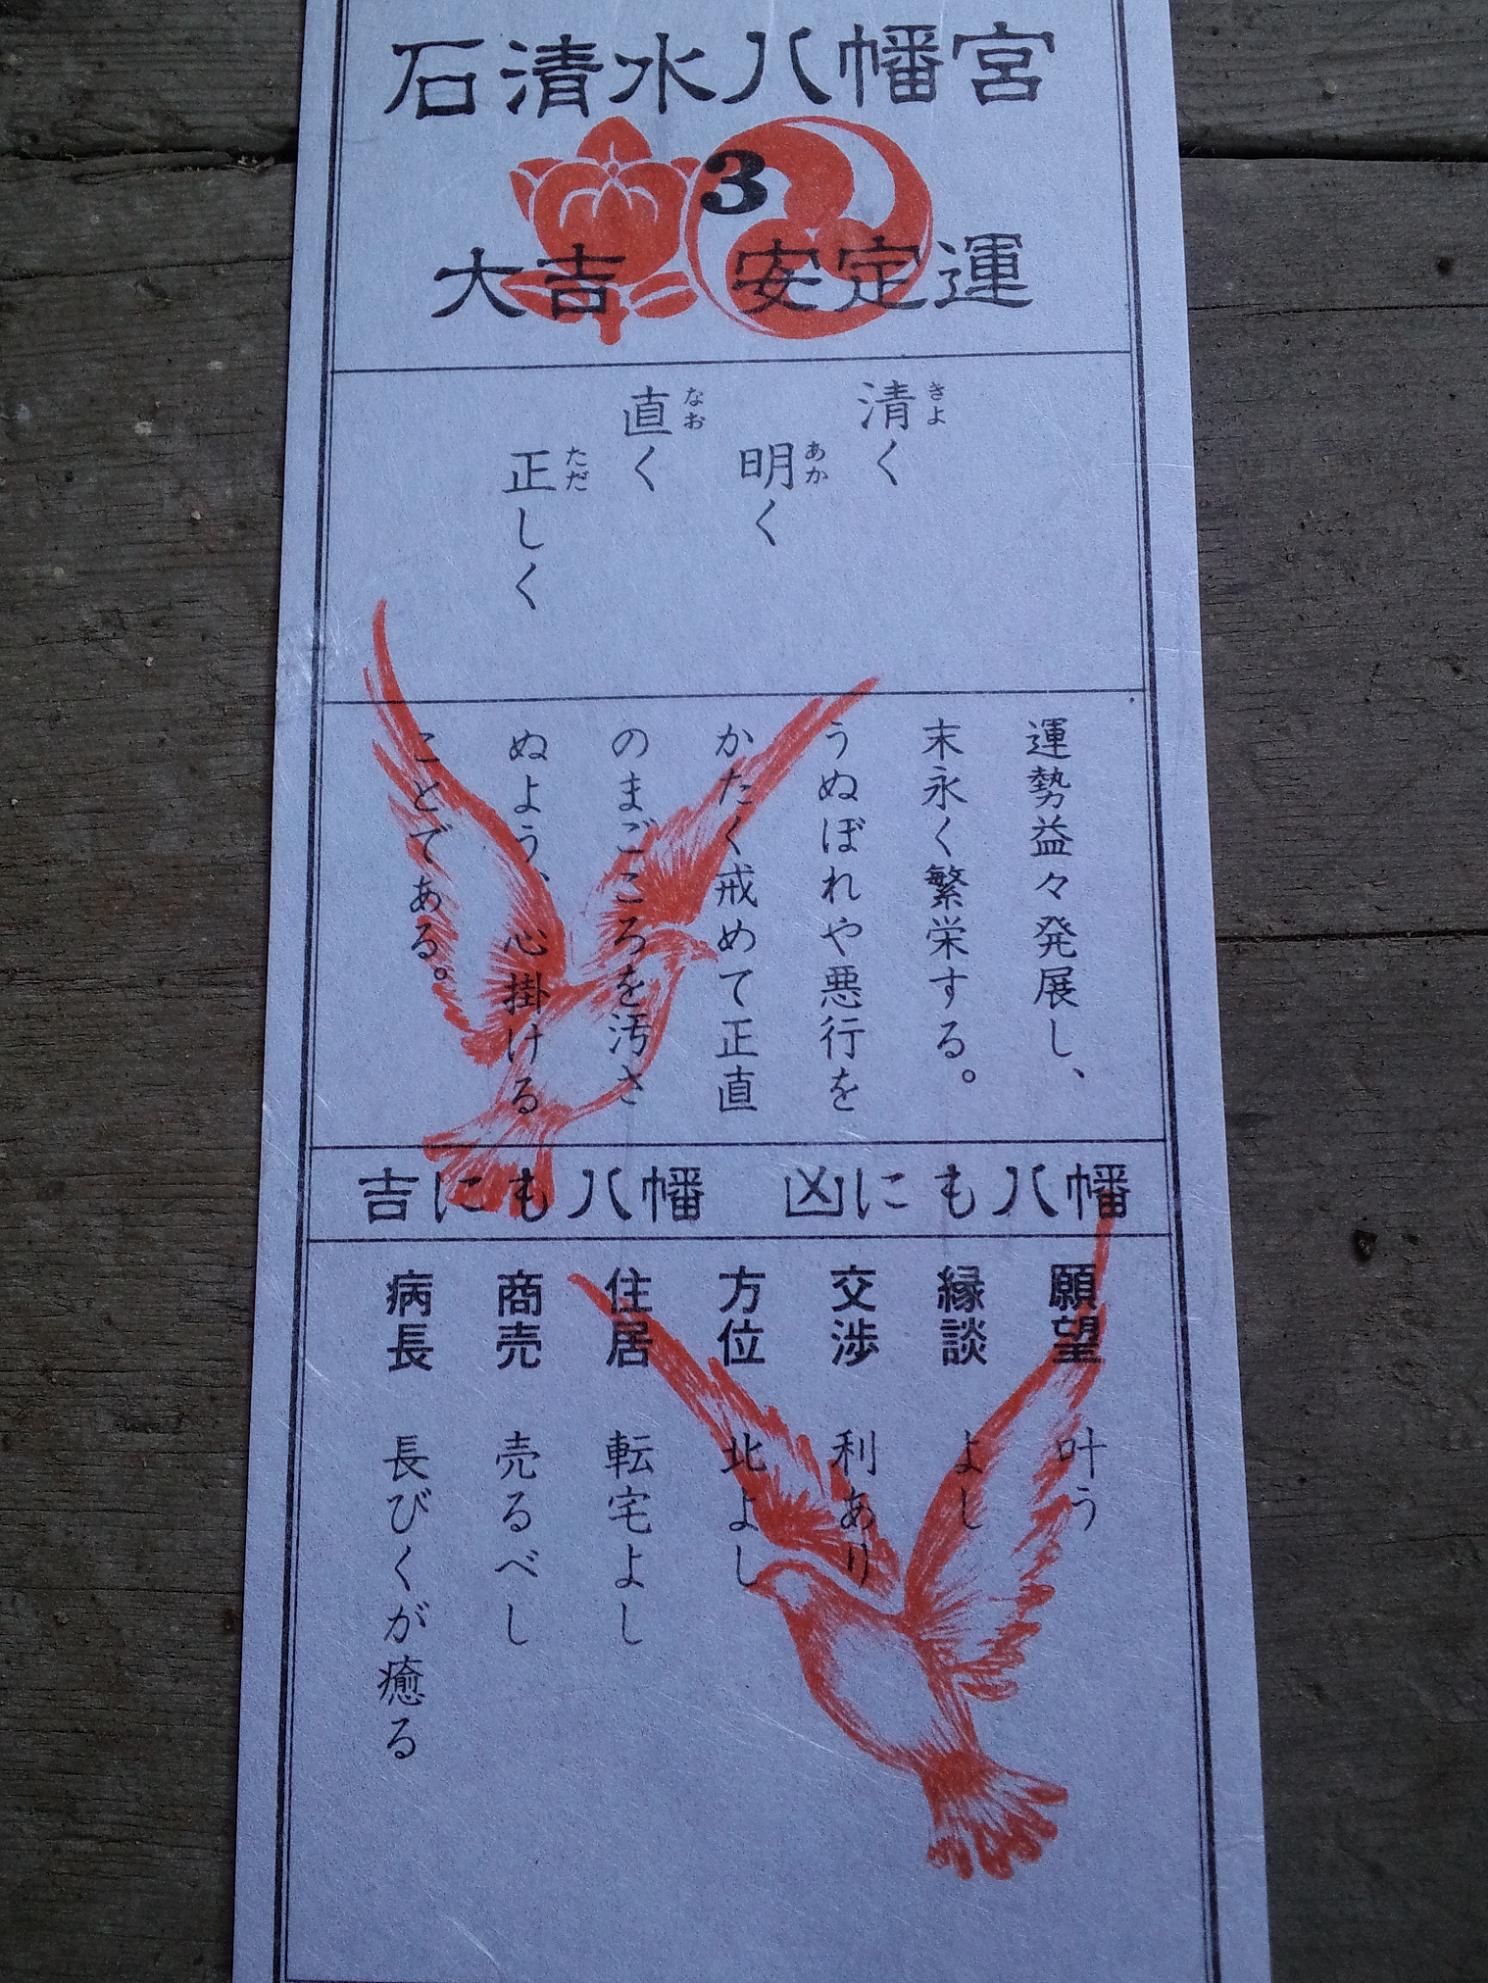 石清水八幡宮
3
大吉　安定運
清く
きよ
明く
あか
直く
なお
正しく
ただ
運勢益々発展し、
末永く繁栄する。
うぬぼれや悪行を
かたく戒めて正直
のまごころを汚さ
ぬよう、心掛ける
ことである。
吉にも八幡　凶にも八幡
願望　叶う
縁談　よし
交渉　利あり
方位　北よし
住居　転宅よし
商売　売るべし
病長　長びくが癒る